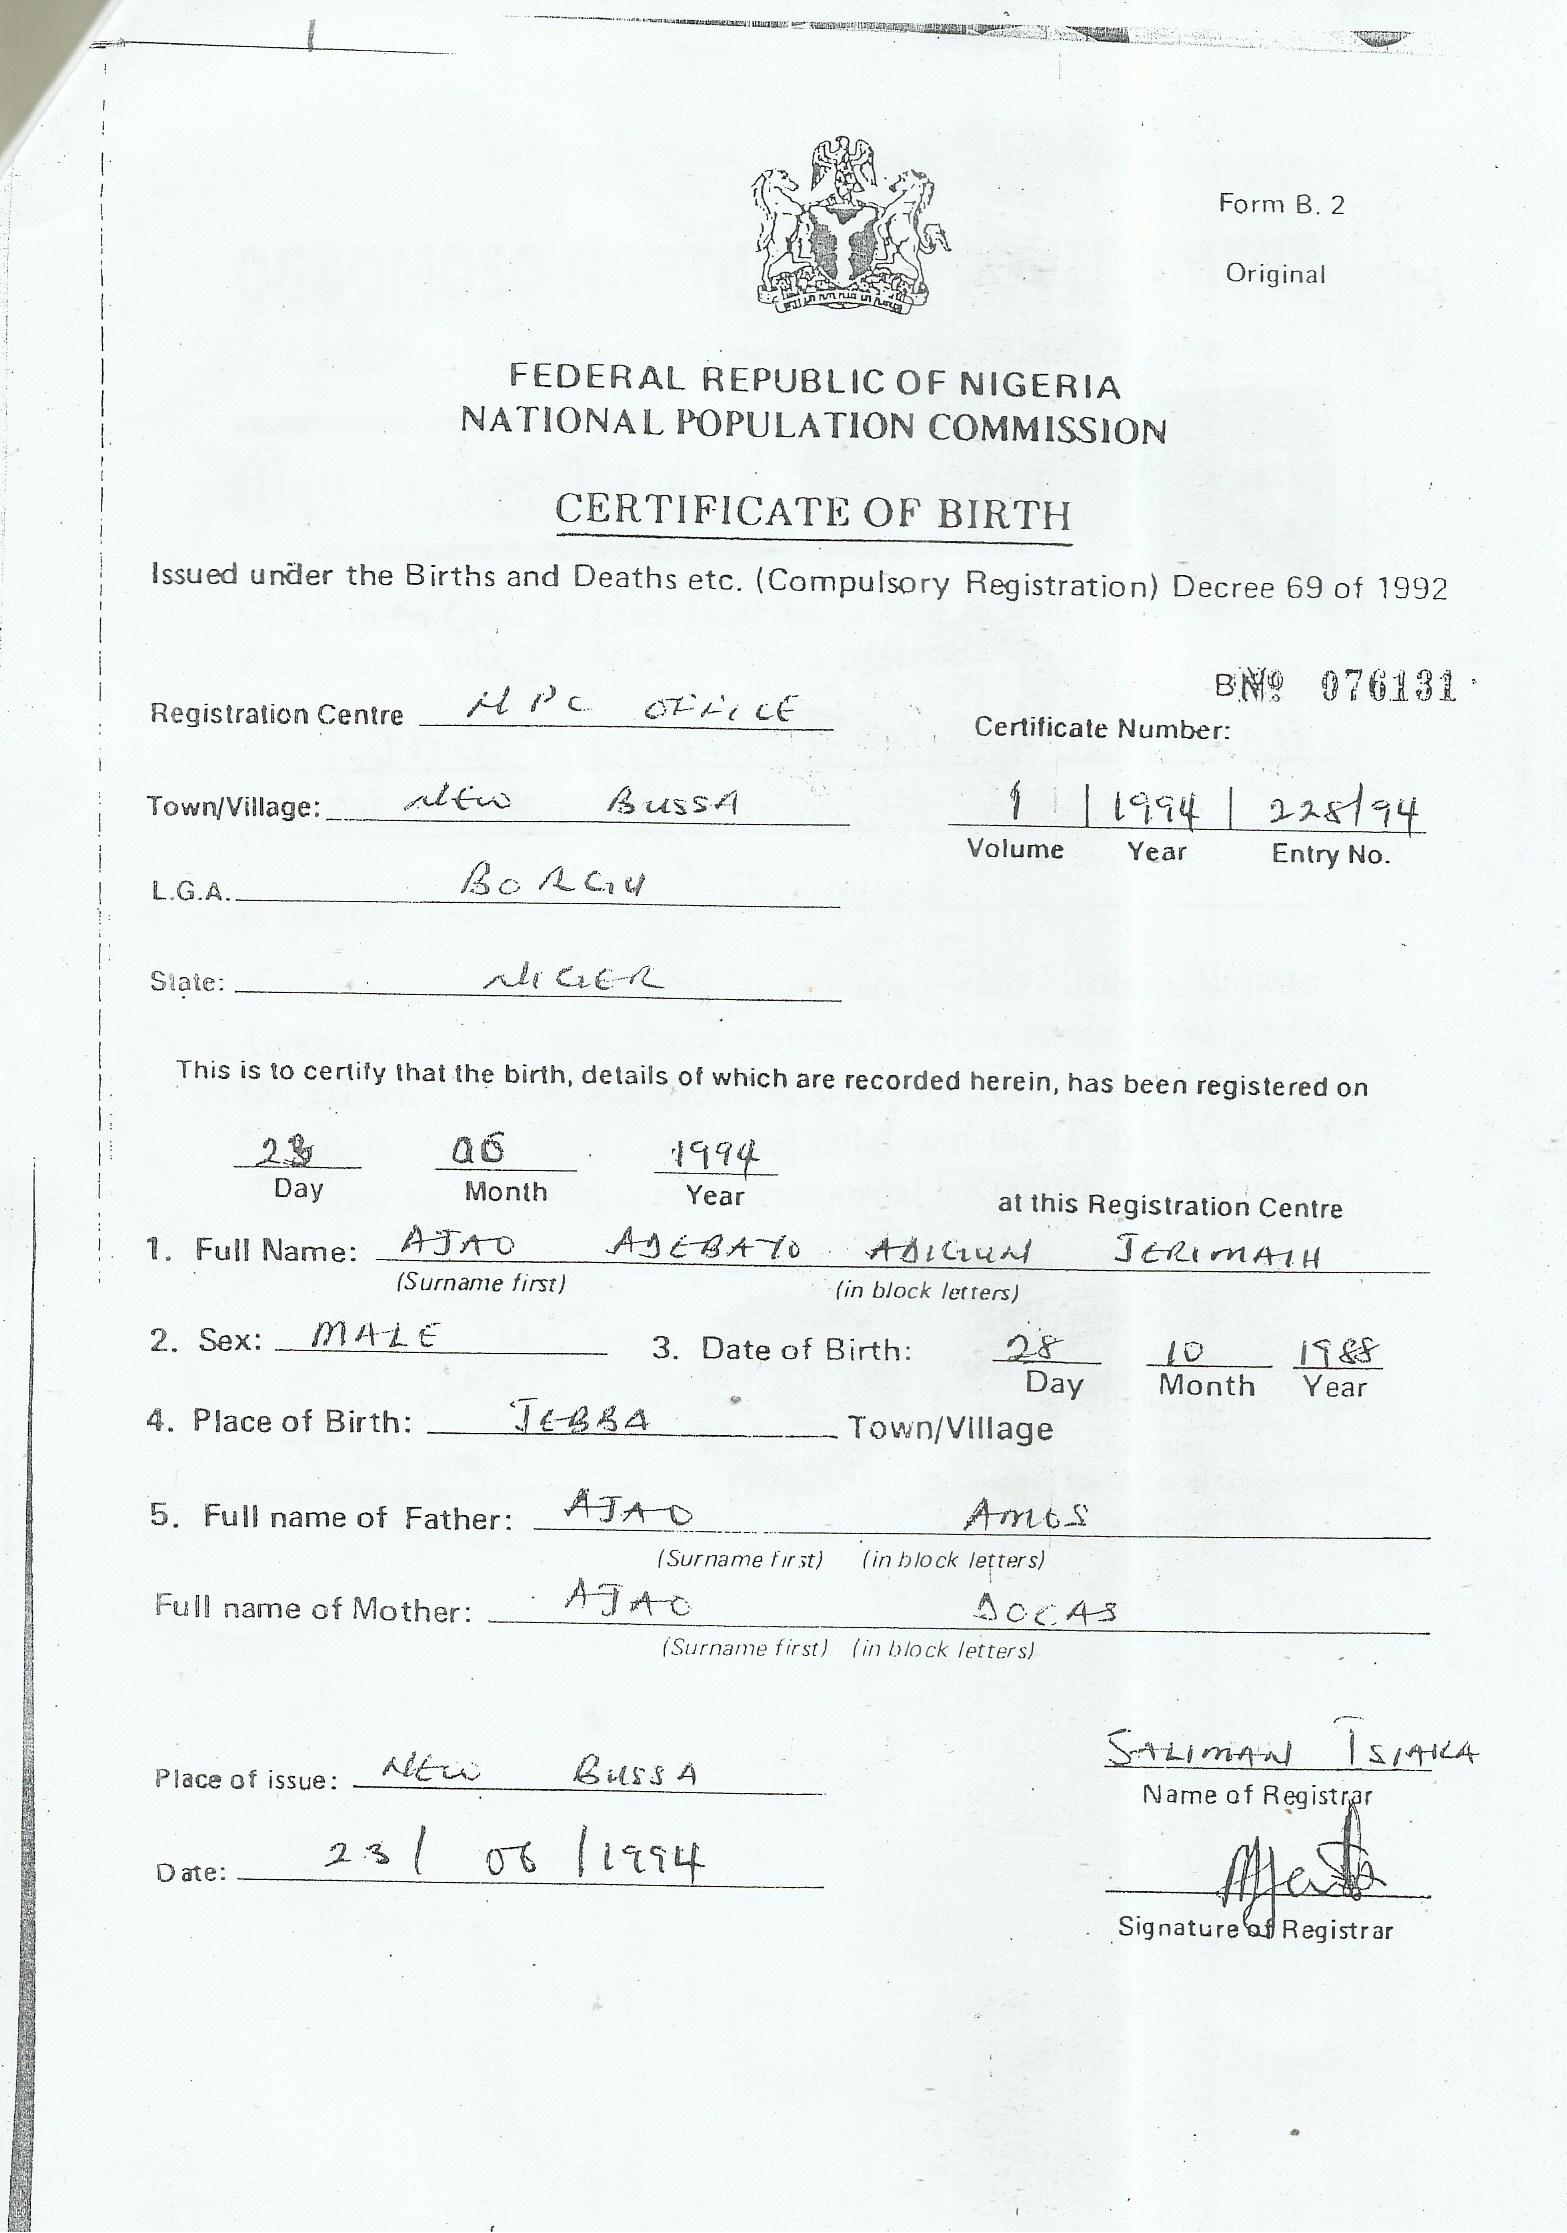 Form B. 2
Original
FEDERAL REPUBLIC OF NIGERIA
NATIONAL POPULATION COMMISSION
CERTIFICATE OF BIRTH
Issued under the Births and Deaths etc. (Compulsory Registration) Decree 69 of 1992
BNº 076131
Registration Centre NPC OFFICE
Certificate Number:
Town/Village: NEW BUSSA
1 | 1994 | 228/94
Volume Year Entry No.
L.G.A. BORGU
State: NIGER
This is to certify that the birth, details of which are recorded herein, has been registered on
23 06 1994
Day Month Year at this Registration Centre
1. Full Name: AJAO ADEBAYO ADIGUN JERIMAIH
(Surname first) (in block letters)
2. Sex: MALE 3. Date of Birth: 28 10 1988
Day Month Year
4. Place of Birth: JEBBA Town/Village
5. Full name of Father: AJAO AMOS
(Surname first) (in block letters)
Full name of Mother: AJAO DOCAS
(Surname first) (in block letters)
SALIMAN ISIAKA
Place of issue: NEW BUSSA
Name of Registrar
Date: 23/06/1994
Signature of Registrar